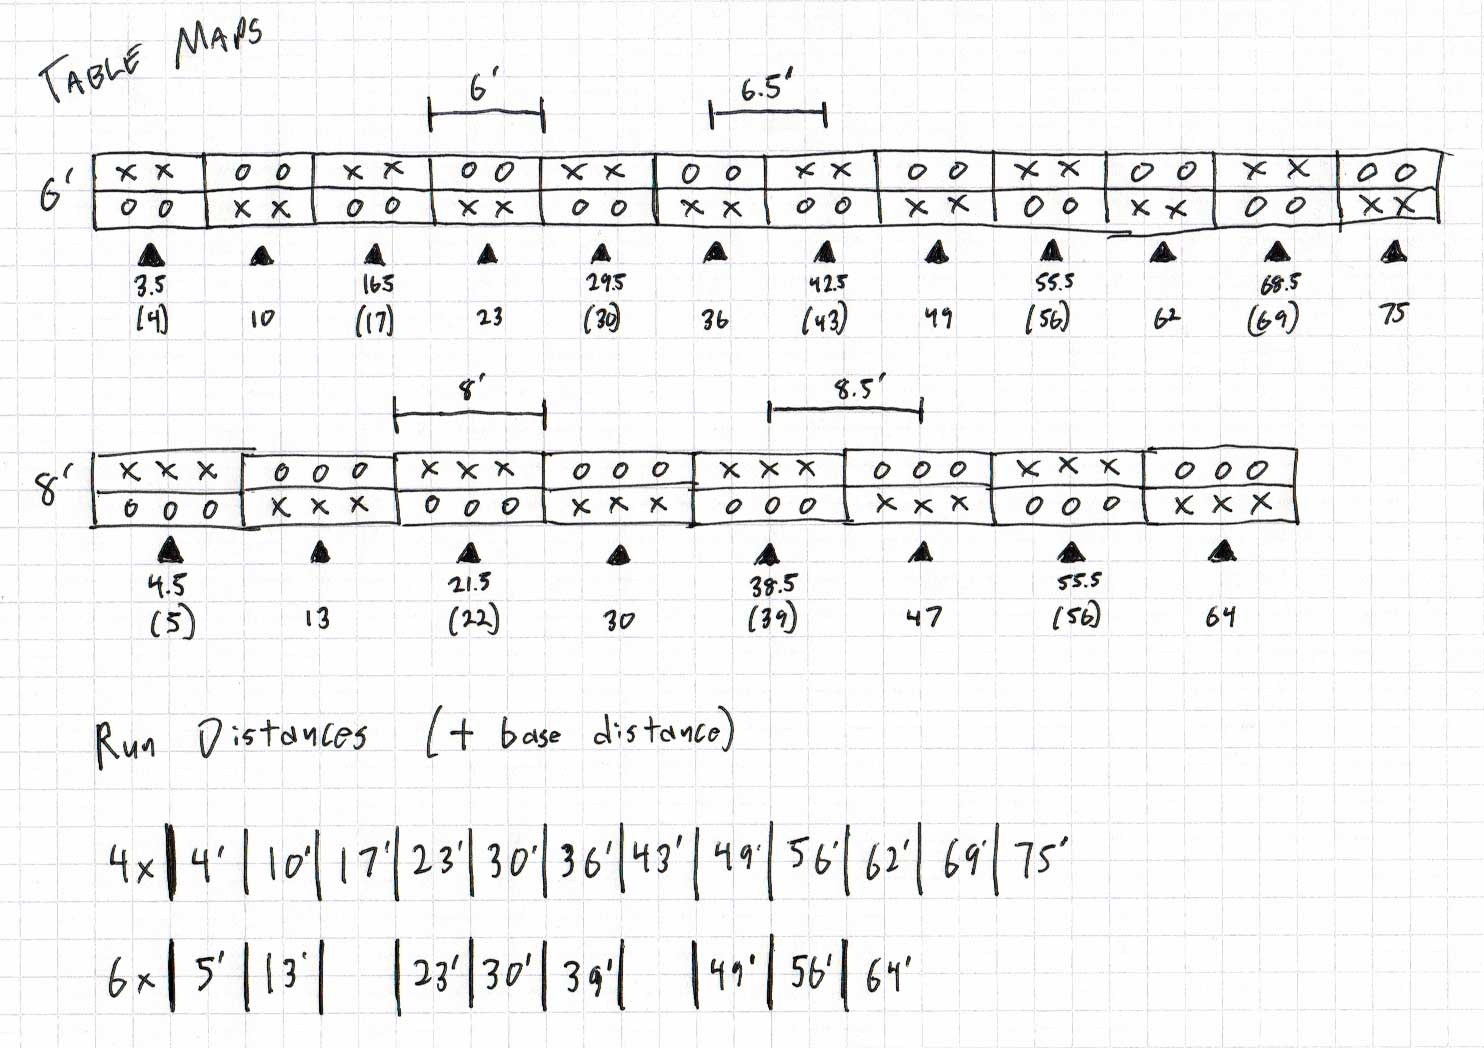 TABLE MAPS
6' 6.5'
6'
X X O O X X O O X X O O X X O O X X O O X X O O
O O X X O O X X O O X X O O X X O O X X O O X X
3.5 165 295 42.5 55.5 68.5
(4) 10 (17) 23 (30) 36 (43) 49 (56) 62 (69) 75
8' 8.5'
8'
X X X O O O X X X O O O X X X O O O X X X O O O
O O O X X X O O O X X X O O O X X X O O O X X X
4.5 21.5 38.5 55.5
(5) 13 (22) 30 (39) 47 (56) 64
Run Distances (+ base distance)
4x | 4' | 10' | 17' | 23' | 30' | 36' | 43' | 49' | 56' | 62' | 69' | 75'
6x | 5' | 13' | | 23' | 30' | 39' | | 49' | 56' | 64'